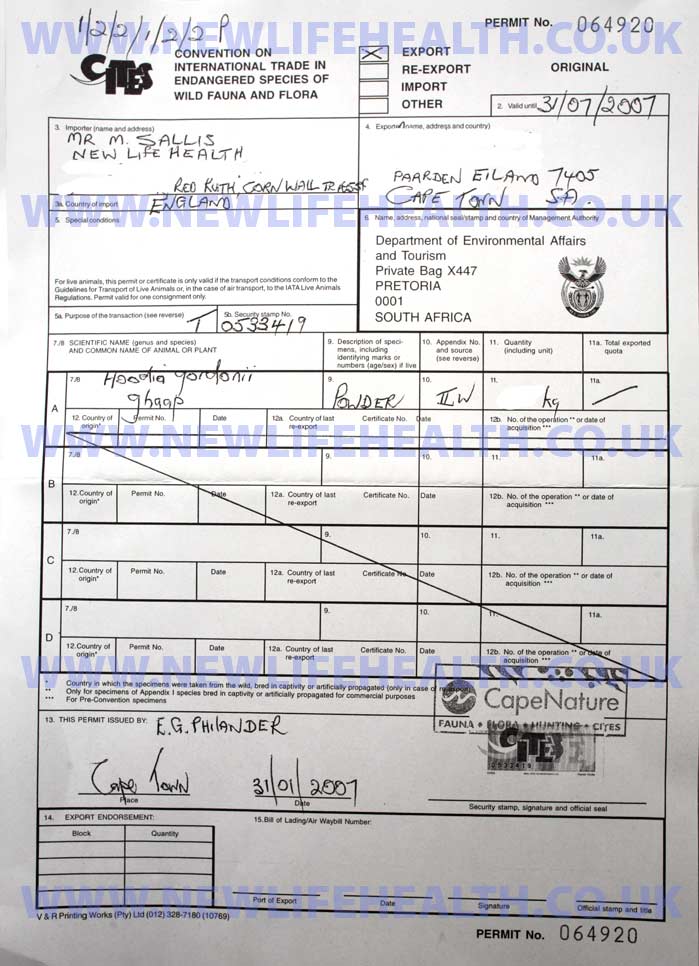 1/2/2/1/2/2-P
PERMIT No. 064920
WWW.NEWLIFEHEALTH.CO.UK
CITES
CONVENTION ON
INTERNATIONAL TRADE IN
ENDANGERED SPECIES OF
WILD FAUNA AND FLORA
EXPORT
RE-EXPORT
IMPORT
OTHER
ORIGINAL
2. Valid until 31/07/2007
3. Importer (name and address)
MR M. SALLIS
NEW LIFE HEALTH
RED RUTH CORNWALL
3a. Country of import
ENGLAND
4. Exporter name, address and country)
PAARDEN EILAND 7405
CAPE TOWN SA.
WWW.NEWLIFEHEALTH.CO.UK
5. Special conditions
For live animals, this permit or certificate is only valid if the transport conditions conform to the
Guidelines for Transport of Live Animals or, in the case of air transport, to the IATA Live Animals
Regulations. Permit valid for one consignment only.
6. Name, address, national seal/stamp and country of Management Authority
Department of Environmental Affairs
and Tourism
Private Bag X447
PRETORIA
0001
SOUTH AFRICA
5a. Purpose of the transaction (see reverse) T
5b. Security stamp No. 0533419
7./8 SCIENTIFIC NAME (genus and species)
AND COMMON NAME OF ANIMAL OR PLANT
9. Description of speci-
mens, including
identifying marks or
numbers (age/sex) if live
10. Appendix No.
and source
(see reverse)
11. Quantity
(including unit)
11a. Total exported
quota
A
7./8 Hoodia gordonii
ghaap
9. POWDER
10. II W
11. kg
11a. —
12. Country of
origin*
Permit No.
Date
12a. Country of last
re-export
Certificate No.
Date
12b. No. of the operation ** or date of
acquisition ***
WWW.NEWLIFEHEALTH.CO.UK
B
7./8
9.
10.
11.
11a.
12.Country of
origin*
Permit No.
Date
12a. Country of last
re-export
Certificate No.
Date
12b. No. of the operation ** or date of
acquisition ***
C
7./8
9.
10.
11.
11a.
12.Country of
origin*
Permit No.
Date
12a. Country of last
re-export
Certificate No.
Date
12b. No. of the operation ** or date of
acquisition ***
D
7./8
9.
10.
11.
11a.
12.Country of
origin*
Permit No.
Date
12a. Country of last
re-export
Certificate No.
Date
12b. No. of the operation ** or date of
acquisition ***
WWW.NEWLIFEHEALTH.CO.UK
* Country in which the specimens were taken from the wild, bred in captivity or artificially propagated (only in case of re-export)
** Only for specimens of Appendix I species bred in captivity or artificially propagated for commercial purposes
*** For Pre-Convention specimens
CapeNature
FAUNA • FLORA • HUNTING • CITES
CITES
0533419
13. THIS PERMIT ISSUED BY: E.G. PHILANDER
Cape Town
Place
31/01/2007
Date
Security stamp, signature and official seal
14. EXPORT ENDORSEMENT:
Block
Quantity
15.Bill of Lading/Air Waybill Number:
WWW.NEWLIFEHEALTH.CO.UK
Port of Export
Date
Signature
Official stamp and title
V & R Printing Works (Pty) Ltd (012) 328-7180 (10769)
PERMIT No. 064920